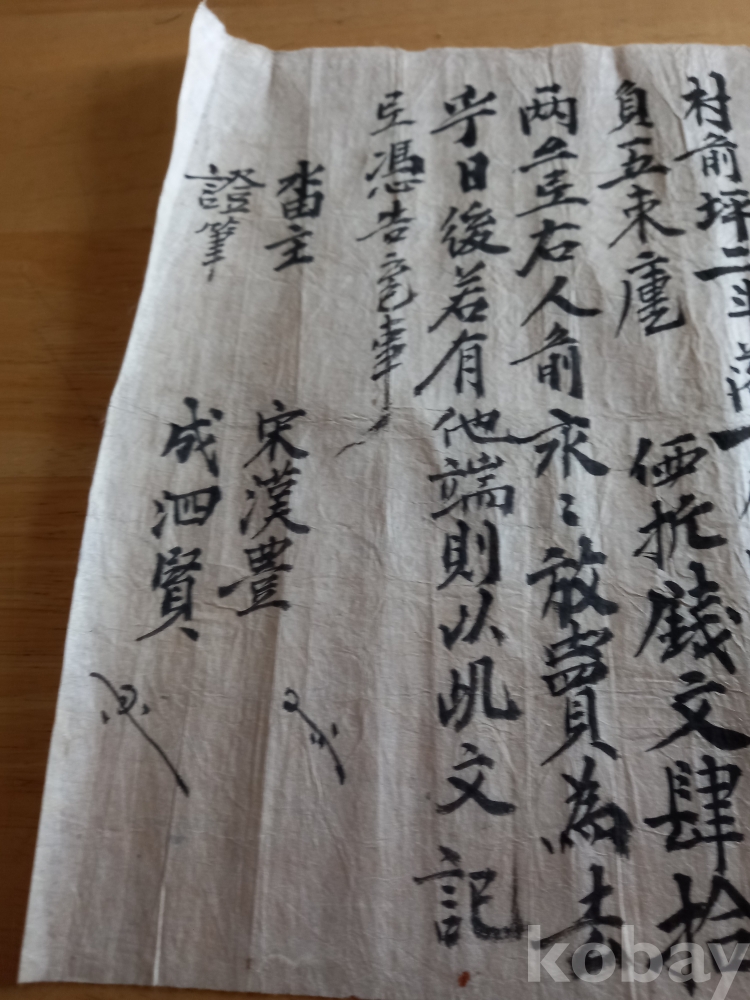 村前坪二斗落
負五束 価折錢文肆拾
両 右人前永〻放賣為去
乎日後若有他端則以此文記
憑告官事
畓主 宋漢豊
證筆 成泗賢
kobay